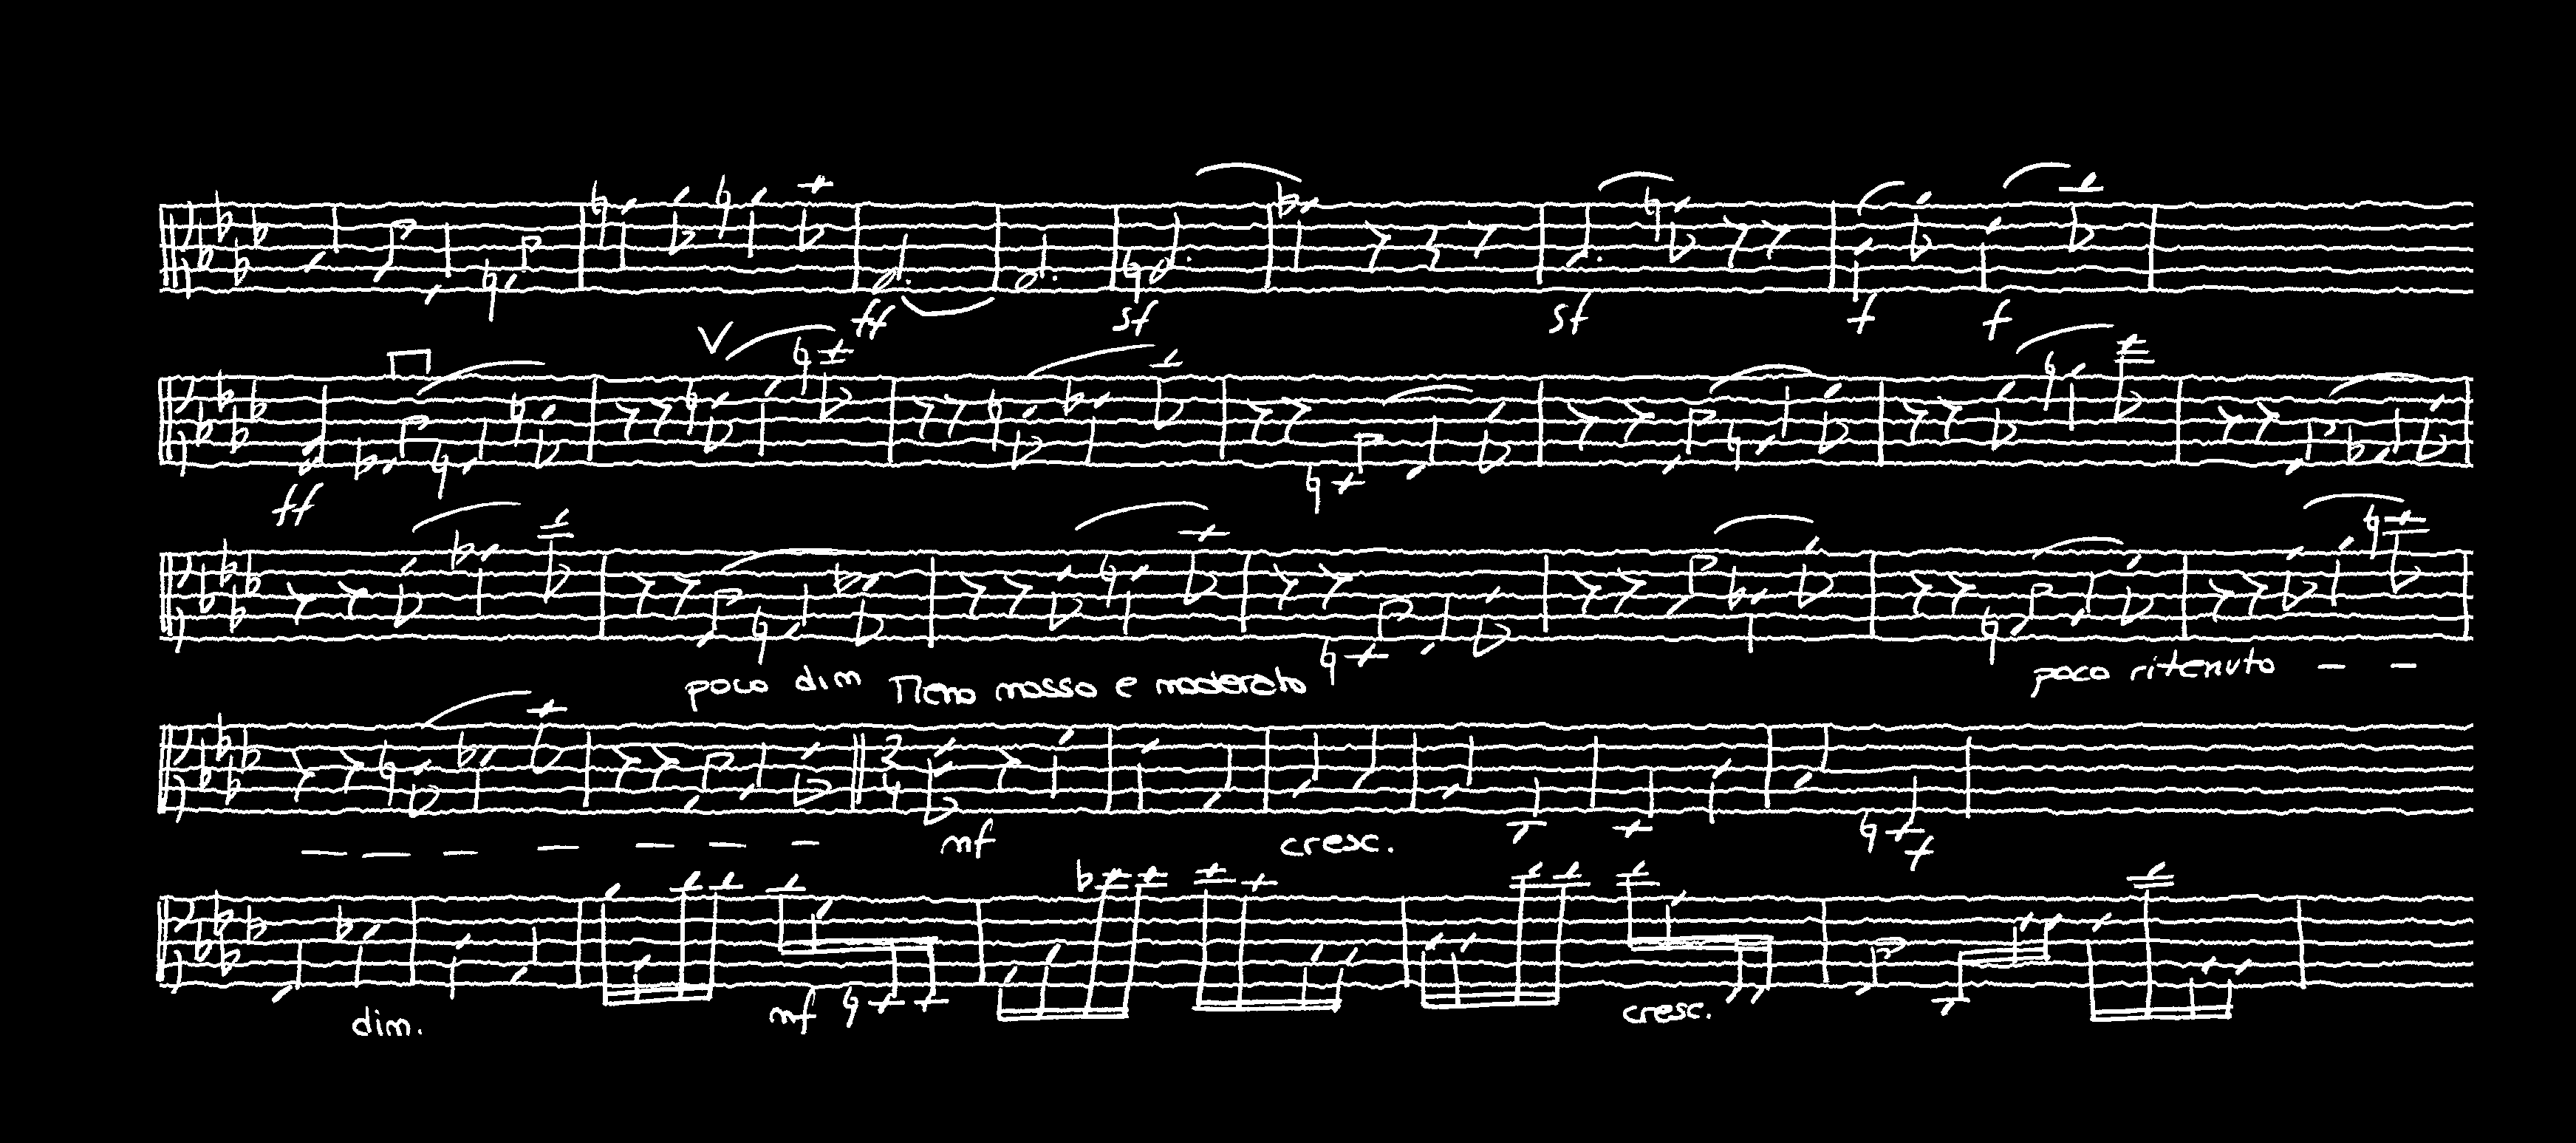 ff sf sf f f
V
ff
poco dim Meno mosso e moderato poco ritenuto
2 4
mf cresc. f
dim. mf cresc.